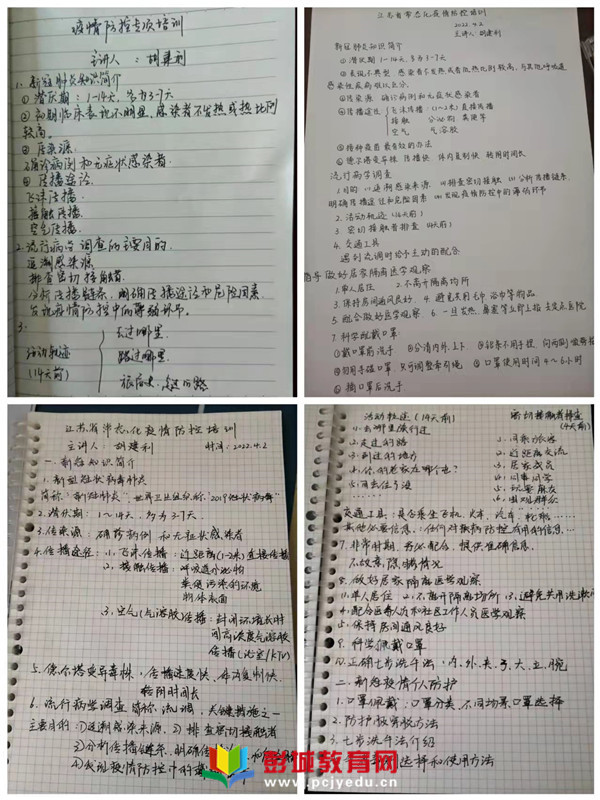 疫情防控专项培训
主讲人：胡建利
1. 新冠肺炎知识简介
① 潜伏期：1-14天，多为3-7天
② 初期临床表现不明显，感染者不发热或热比例
较高。
③ 传染源
确诊病例和无症状感染者
④ 传播途径
飞沫传播
接触传播
空气传播
2. 流行病学调查的主要目的
追溯感染源
排查密切接触者
分析传播链条，明确传播途径和危险因素
发现疫情防控中的薄弱环节。
3.
活动轨迹
(14天前)
去过哪里
跟过哪里
江苏省常态化疫情防控培训
2022.4.2
主讲人 胡建利
新冠肺炎知识简介
① 潜伏期 1-14天，多为3-7天
③ 传染源 确诊病例和无症状感染者
④ 传播途径
飞沫传播：(1-2米) 直接传播
接触 分泌物 粪便等
空气 气溶胶
⑤ 接种疫苗最有效的办法
⑥ 德尔塔变异株 传播快 体内复制快 转阴时间长
流行病学调查
1 目的 (1)追溯感染来源 (2)排查密切接触 (3)分析传播链条
明确传播途径和危险因素 (4)发现疫情防控中的薄弱环节
2. 活动轨迹 (14天前)
3. 密切接触者排查 (4天前)
4. 交通工具
遇到流调时给予主动的配合
指导做好居家隔离医学观察
1. 单人居住 2. 不离开隔离场所
3. 保持房间通风良好 4. 避免共用毛巾 浴巾等物品
7 科学佩戴口罩
① 戴口罩前洗手 ② 分清内外、上下
⑤ 口罩使用时间 4~6小时
⑥ 摘口罩后洗手
江苏省常态化疫情防控培训
主讲人：胡建利 时间：2022.4.2
一. 新冠知识简介
1. 新型冠状病毒肺炎
简称"新冠肺炎"，世界卫生组织称"2019冠状病毒病"
2. 潜伏期：1~14天，多为3-7天。
3. 传染源：确诊病例 和 无症状感染者
4. 传播途径：1. 飞沫传播：近距离(1-2米)直接传播
2. 接触传播：呼吸道分泌物
粪便污染的环境
物体表面
3. 空气(气溶胶)传播：封闭环境长时
间高浓度气溶胶
传播(浴室/KTV)
5. 德尔塔变异毒株，传播速度快，体内复制快
转阴时间长
6. 流行病学调查 简称：流调，关键措施之一
主要目的：①追溯感染来源、②排查密切接触者
③分析传播链条、明确传
④发现疫情防控中的薄
活动轨迹 (14天前)
密切接触者排查
(4天前)
1. 去哪里旅行过
2. 走过的路
3. 到过的地方
1. 同乘旅客
2. 近距离交流
3. 居家成员
4. 同事同学
交通工具：是否乘坐飞机，火车，汽车，轮船……
7. 非常时期，务必配合，提供准确信息，
不故意隐瞒情况
8. 做好居家隔离医学观察
1. 单人居住 2. 不离开隔离场所 3. 避免共用洗漱
4. 配合医务人员和社区工作人员医学观察
5. 保持房间通风良好
9. 科学佩戴口罩
10. 正确七步洗手法：内、外、夹、弓、大、立、腕
二. 新冠疫情个人防护
1. 口罩佩戴：口罩分类、不同场景口罩选择
2. 防护服穿脱方法
3. 七步洗手法介绍
选择和使用方法
彭城教育网
www.pcjyedu.cn